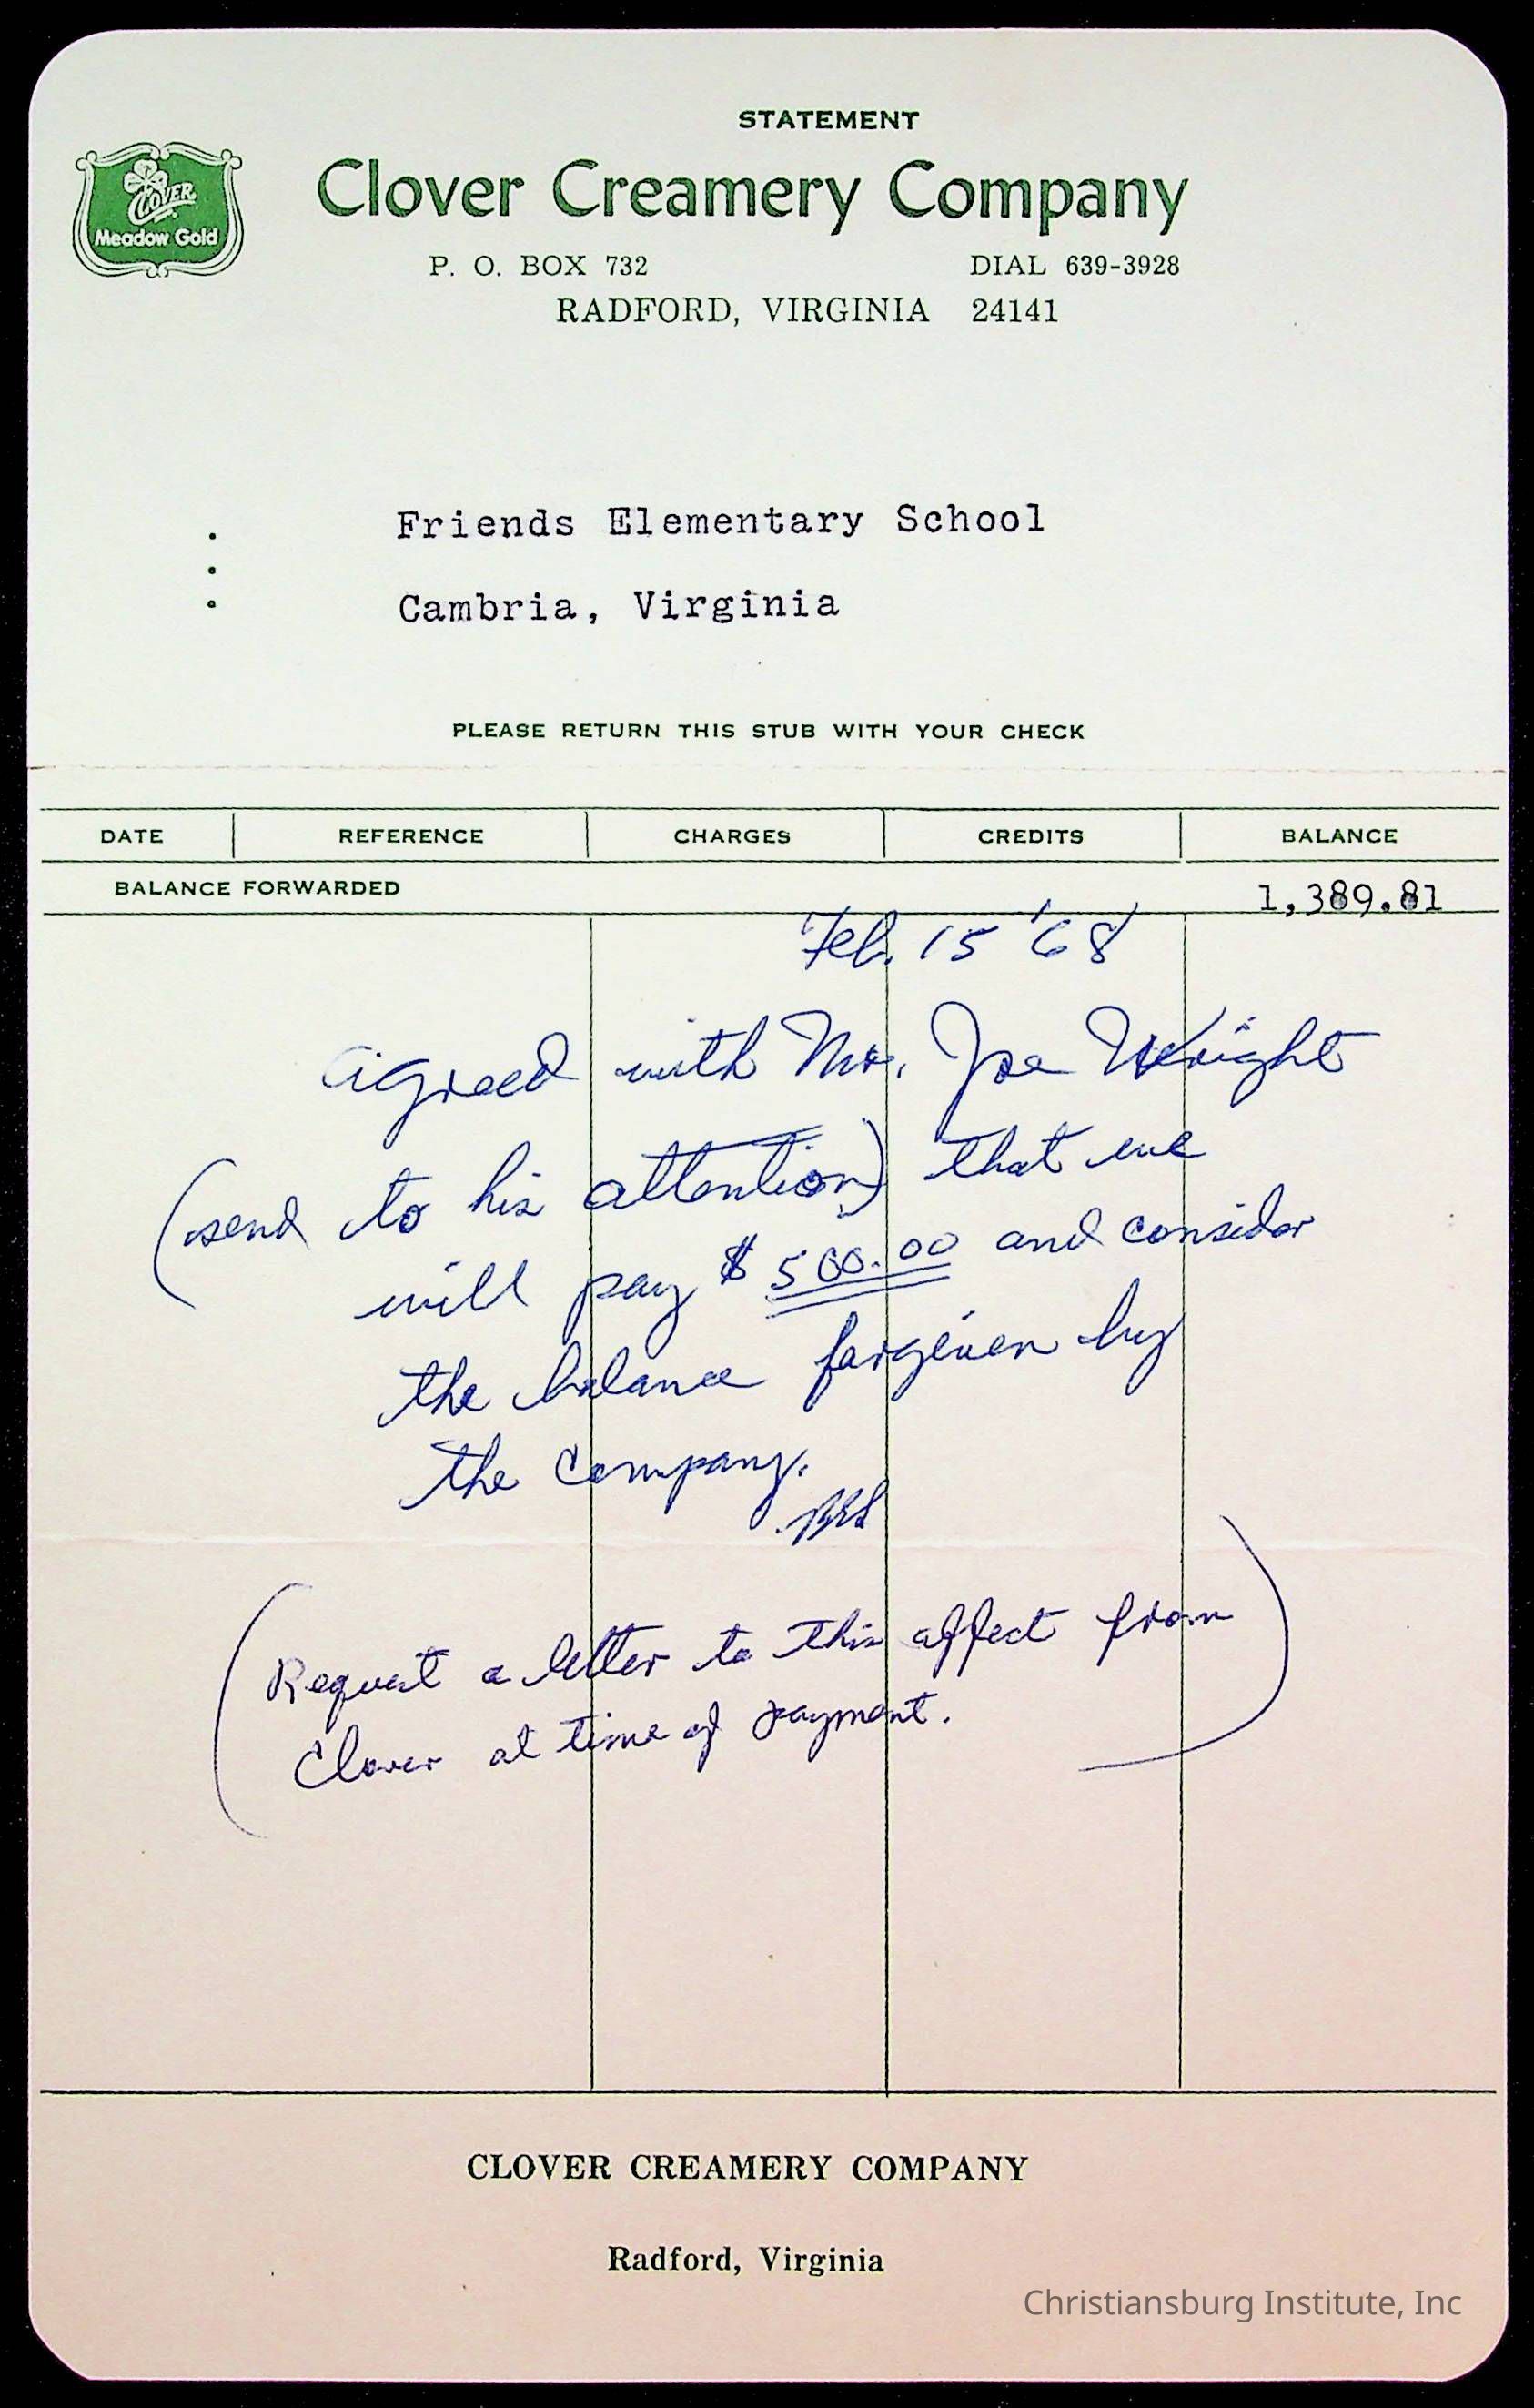 STATEMENT
CLOVER
Meadow Gold
Clover Creamery Company
P. O. BOX 732 DIAL 639-3928
RADFORD, VIRGINIA 24141
Friends Elementary School
Cambria, Virginia
PLEASE RETURN THIS STUB WITH YOUR CHECK
DATE REFERENCE CHARGES CREDITS BALANCE
BALANCE FORWARDED 1,389.81
Feb. 15 '68
agreed with Mr. Joe Wright
(send to his attention) that we
will pay $ 500.00 and consider
the balance forgiven by
the company.
(Request a letter to this affect from
Clover at time of payment.)
CLOVER CREAMERY COMPANY
Radford, Virginia
Christiansburg Institute, Inc